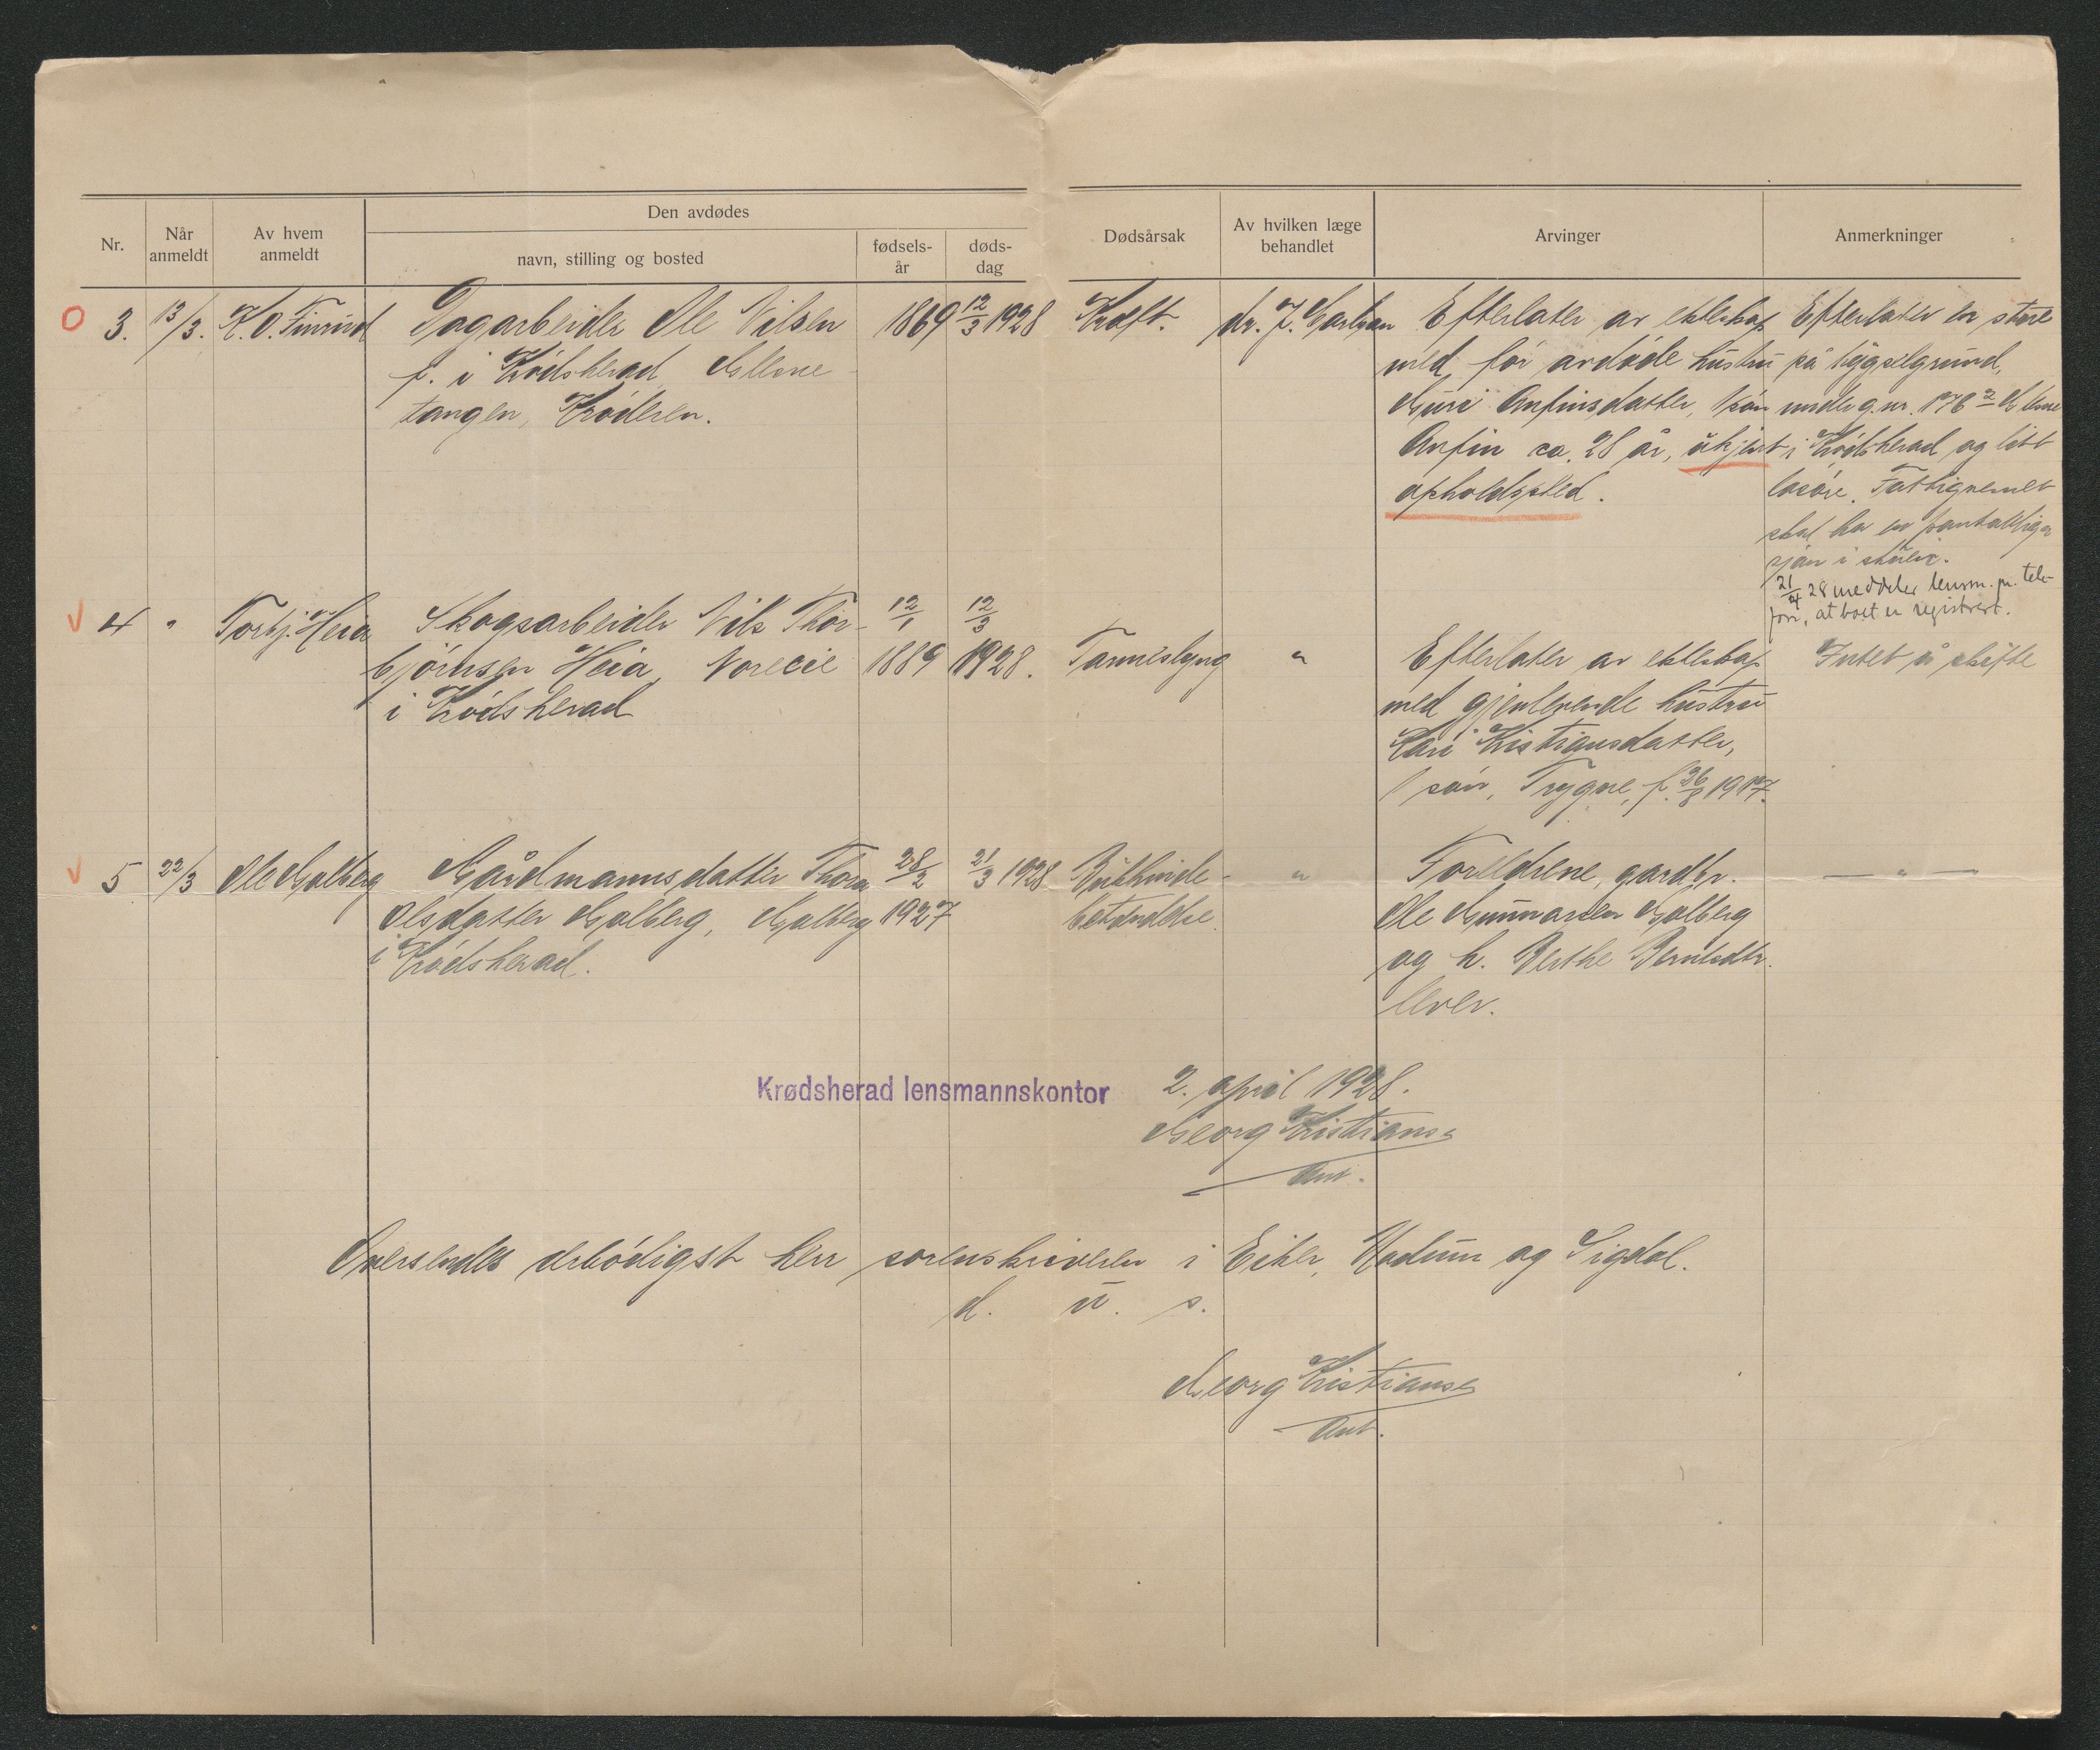 Nr.
Når anmeldt
Av hvem anmeldt
Den avdødes
navn, stilling og bosted
fødsels-år
døds-dag
Dødsårsak
Av hvilken læge behandlet
Arvinger
Anmerkninger
3. 13/3. K. O. Finrud
Dagarbeider Ole Nilsen
f. i Krødsherad
tangen, Krøderen.
1869 12/3 1928
Kræft.
dr. J.
Efterlater av ekteskap
med før avdøde hustru
Guri Anfinsdatter, 1 søn
Anfin ca. 28 år, ukjent
opholdssted.
Efterlater en stue
på bygselgrund,
under g.nr. 176
i Krødsherad og litt
løsøre. Fattigvesenet
skal ha en pantobliga
sjon i stuen.
21/4 28 meddeler lensm. pr. tele-
fon, at boet er registrert.
4 " Torbj. Heia
Skogsarbeider Nils Thor-
bjørnsen Heia, Noresie
i Krødsherad
12/1 1889
12/3 1928.
"
Efterlater av ekteskap
med gjenlevende hustru
Kari Kristiansdatter,
1 søn, Trygve, f. 26/8 1917.
Intet å skifte
5 22/3 Ole Golberg
Gårdmannsdatter Thora
Olsdatter Golberg, Golberg
i Krødsherad.
28/2 1927
21/3 1928
betendelse.
"
Foreldrene, gardbr.
Ole Gunnarsen Golberg
og h. Berthe Berntsdtr.
lever.
— " —
Krødsherad lensmannskontor 2. april 1928.
Georg Kristiansen
Aut.
Oversendes ærbødigst herr sorenskriveren i Eiker, Modum og Sigdal.
d. u. s.
Georg Kristiansen
Aut.